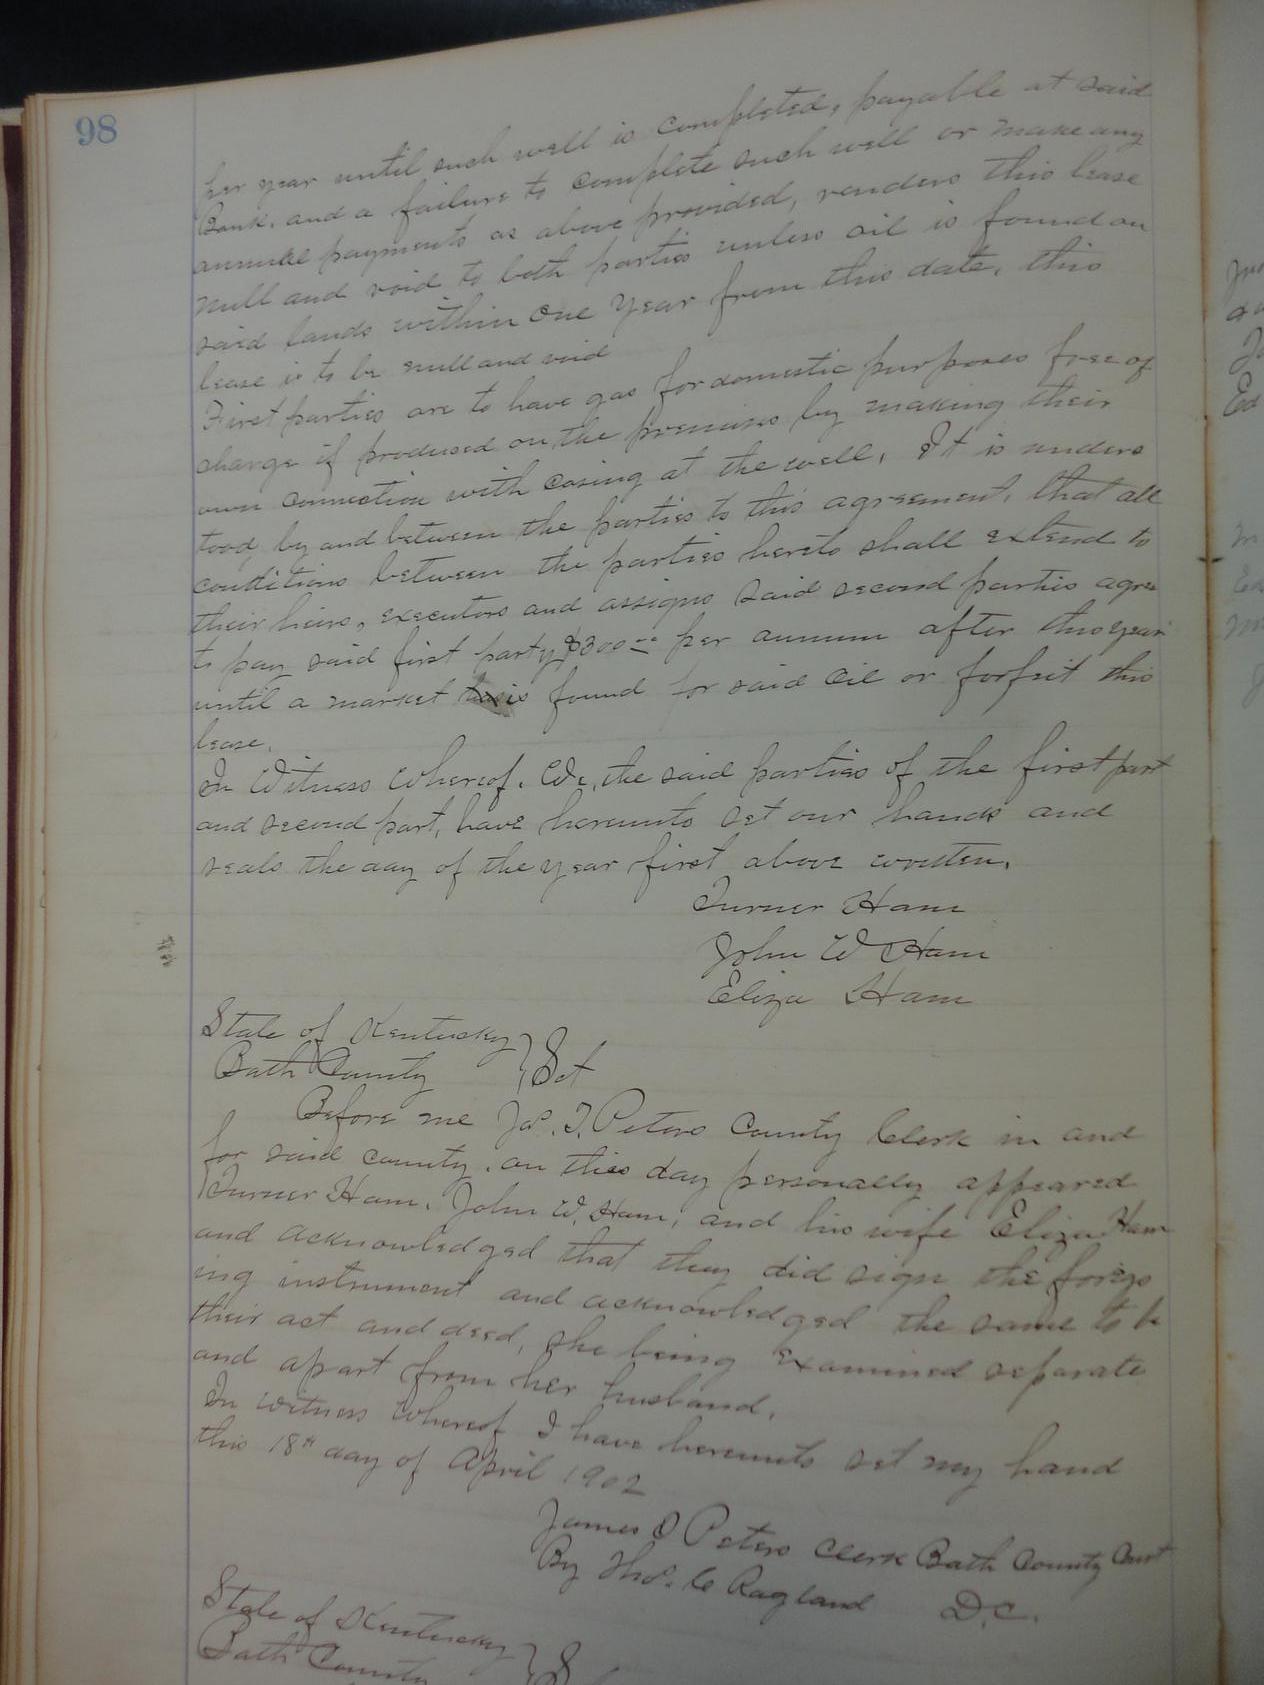 98
per year until such well is completed, payable at said
Bank, and a failure to complete such well or make any
annual payments as above provided, renders this lease
null and void to both parties unless oil is found on
said lands within one year from this date, this
lease is to be null and void
First parties are to have gas for domestic purposes free of
charge if produced on the premises by making their
own connection with casing at the well. It is unders
tood by and between the parties to this agreement, that all
conditions between the parties hereto shall extend to
their heirs, executors and assigns said second parties agree
to pay said first party $300 per annum after this year
until a market is found for said oil or forfeit this
lease.
In Witness Whereof. We, the said parties of the first part
and second part, have hereunto set our hands and
seals the day of the year first above written.
Turner Ham
John W Ham
Eliza Ham
State of Kentucky } Sct
Bath County
Before me Jas. T. Peters County Clerk in and
for said county, on this day personally appeared
Turner Ham, John W. Ham, and his wife Eliza Ham
and acknowledged that they did sign the forego
ing instrument and acknowledged the same to be
their act and deed, she being examined separate
and apart from her husband.
In witness Whereof I have hereunto set my hand
this 18th day of April 1902
James Peters Clerk Bath County Court
By Thos. C Ragland D.C.
State of Kentucky }
Bath County